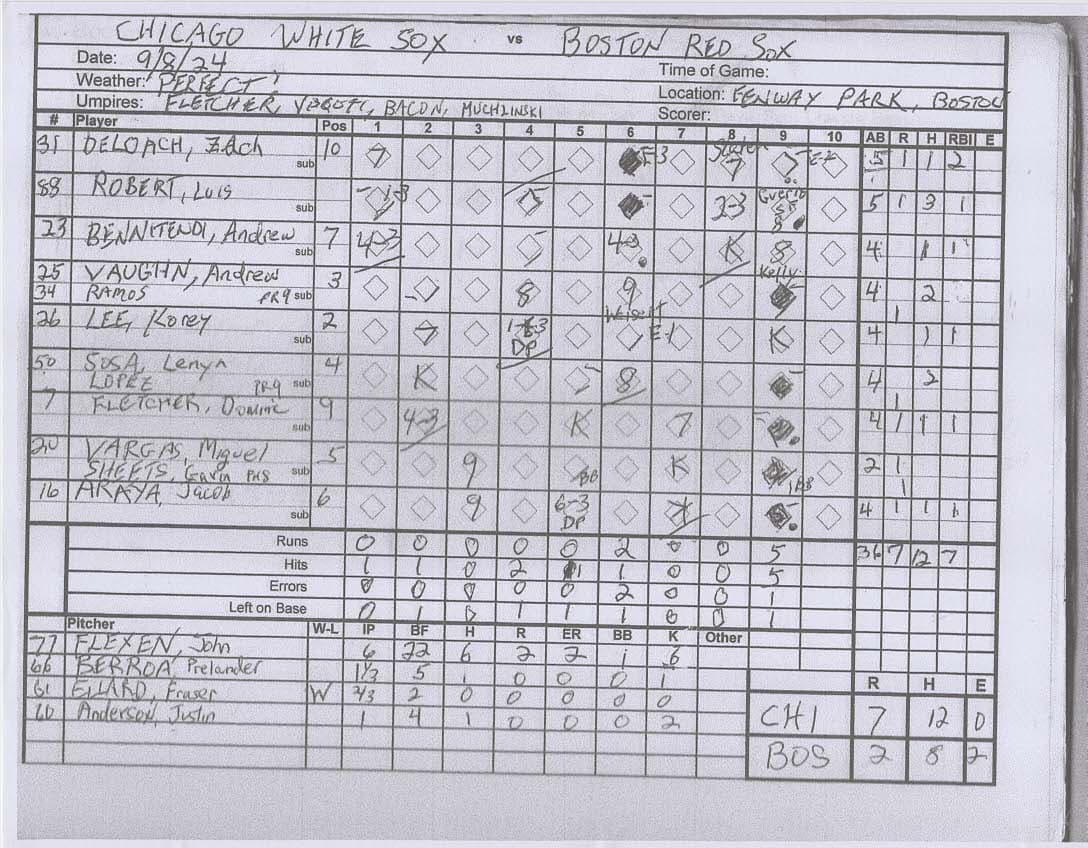 CHICAGO WHITE SOX vs BOSTON RED SOX
Date: 9/8/24 Time of Game:
Weather: PERFECT Location: FENWAY PARK, BOSTON
Umpires: FLETCHER, BACON, MUCHLINSKI Scorer:
# Player Pos 1 2 3 4 5 6 7 8 9 10 AB R H RBI E
31 DELOACH, Zach sub 10 7 E-3 7 E-2 5 1 1 2
88 ROBERT, LUIS sub 1-3 2-3 8 5 1 3 1
23 BENNITENDI, Andrew sub 7 4-3 4-3 K 8 4 1 1
25 VAUGHN, Andrew 3 8 9 Kelly 4 2
34 RAMOS PR9 sub 1
26 LEE, Korey sub 2 1-6-3 DP E-1 K 4 1 1
50 SOSA, Lenyn 4 K 8 4 2
LOPEZ PR9 sub 1
7 FLETCHER, Dominic sub 9 4-3 K 7 4 1 1 1
20 VARGAS, Miguel 5 9 BB K 2 1
SHEETS, Gavin PH8 sub 1
16 ARAYA, Jacob sub 6 9 6-3 DP K 4 1 1 1
Runs 0 0 0 0 0 2 0 0 5 36 7 12 7
Hits 1 1 0 2 1 1 0 0 5
Errors 0 0 0 0 0 2 0 0 1
Left on Base 0 1 0 1 1 1 0 0 1
Pitcher W-L IP BF H R ER BB K Other
77 FLEXEN, John 6 22 6 2 2 1 6
66 BERROA, Prelander 1 1/3 5 1 0 0 0 1
61 ELLARD, Fraser W 2/3 2 0 0 0 0 0
60 Anderson, Justin 1 4 1 0 0 0 2
R H E
CHI 7 12 0
BOS 2 8 2